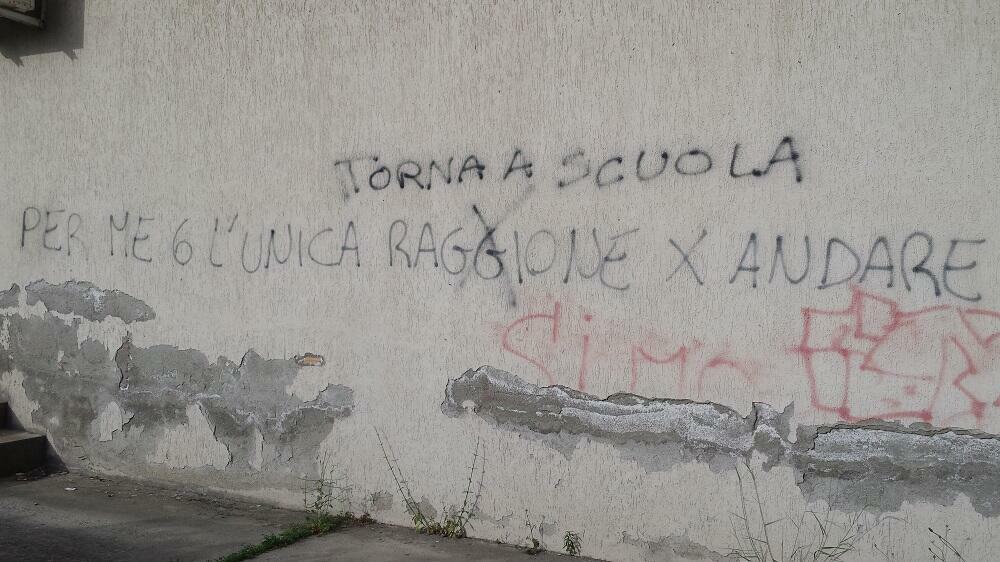 TORNA A SCUOLA
PER ME 6 L'UNICA RAGGIONE X ANDARE
SiMO